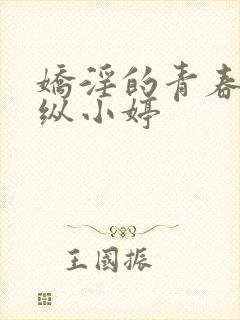 嬌淫的青春
纵小婷
王國振